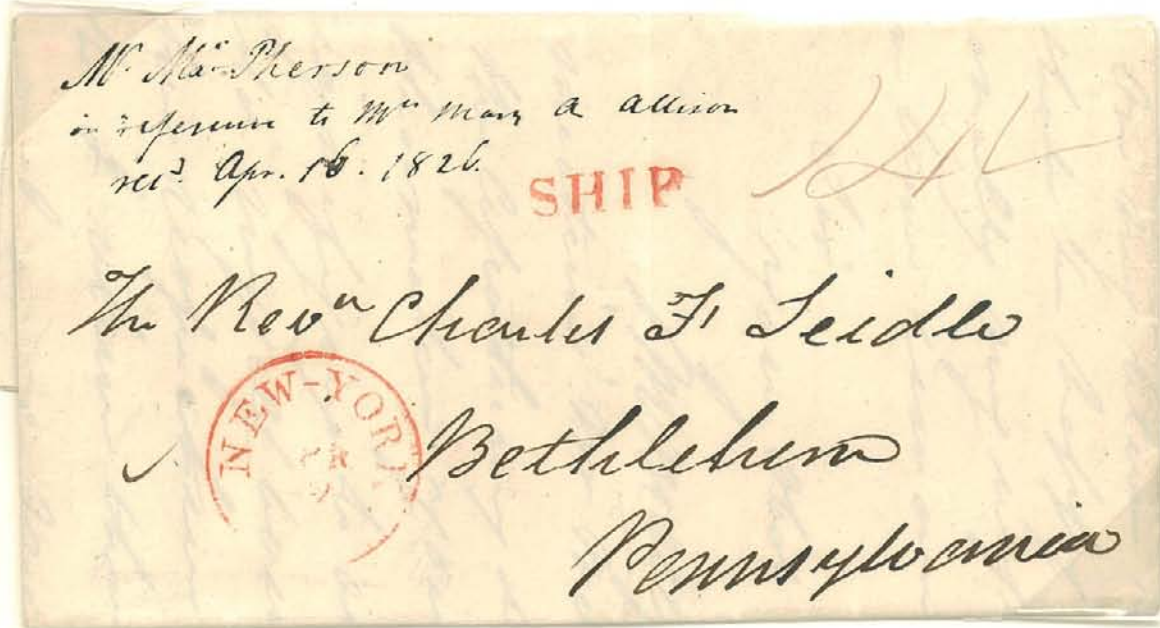 Mr. MacPherson
in reference to Mrs Mary A Allison
recd. Apr. 16. 1826.
SHIP
The Revn Charles F Seidle
NEW-YORK
Bethlehem
Pennsylvania